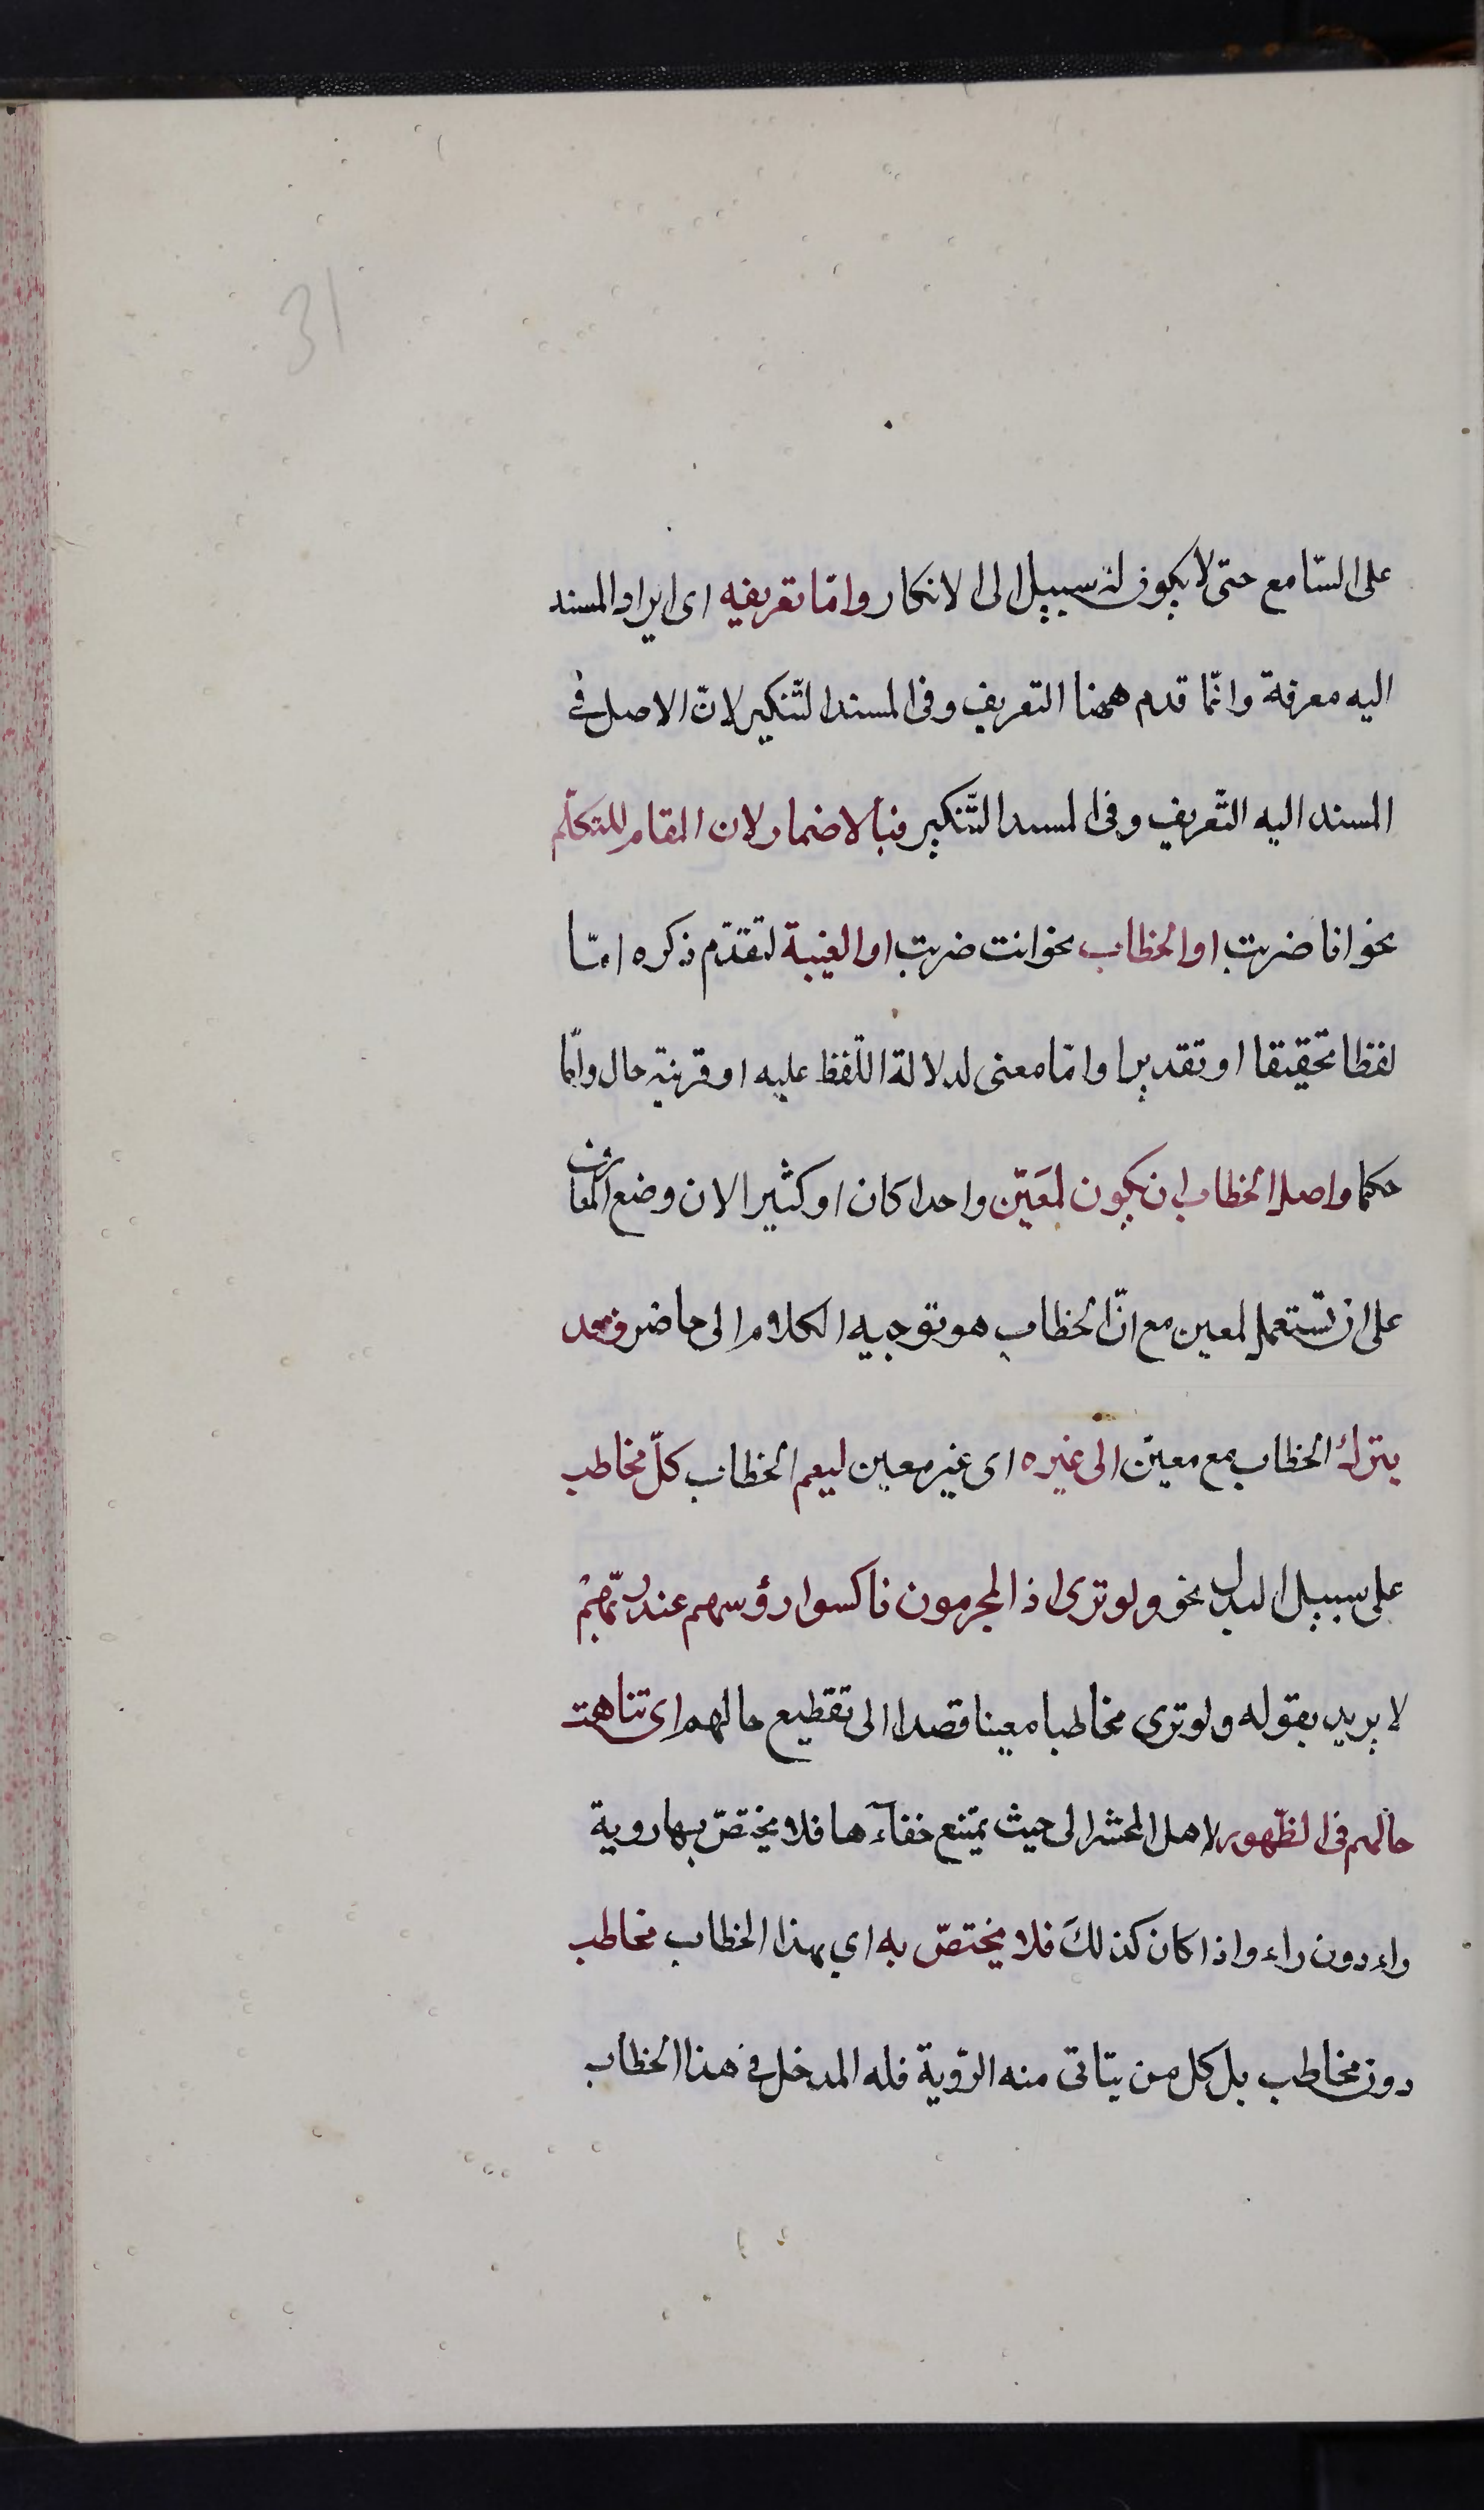 31
على السّامع حتى لا يكون له سبيل الى الانكار وامّا تعريفه اى ايراد المسند
اليه معرفة وانّما قدم ههنا التعريف وفى المسند التّنكير لانّ الاصل فى
المسند اليه التّعريف وفى المسند التّنكير فبالاضمار لان المقام للتكلّم
نحو انا ضربت او الخطاب نحو انت ضربت او الغيبة لتقدّم ذكره امّا
لفظا تحقيقا او تقديرا وامّا معنى لدلالة اللّفظ عليه او قرينة حال وامّا
حكما واصل الخطاب ان يكون لمعَيّن واحدا كان او كثيرا لان وضع المعارف
على ان تستعمل لمعين مع انّ الخطاب هو توجيه الكلام الى حاضر وقد
يترك الخطاب مع معيّن الى غيره اى غير معين ليعم الخطاب كلّ مخاطب
على سبيل البدل نحو ولو ترى اذ المجرمون ناكسوا رؤسهم عند ربّهمْ
لا يريد بقوله ولو ترى مخاطبا معينا قصدا الى تقطيع حالهم اى تناهت
حالهم فى الظّهور لاهل المحشر الى حيث يمتنع خفآءها فلا يختصّ بها روية
راء دون راء واذا كان كذلكَ فلا يختصّ به اي بهذا الخطاب مخاطب
دون مخاطب بل كل من يتاتى منه الرّوية فله المدخل فى هذا الخطاب